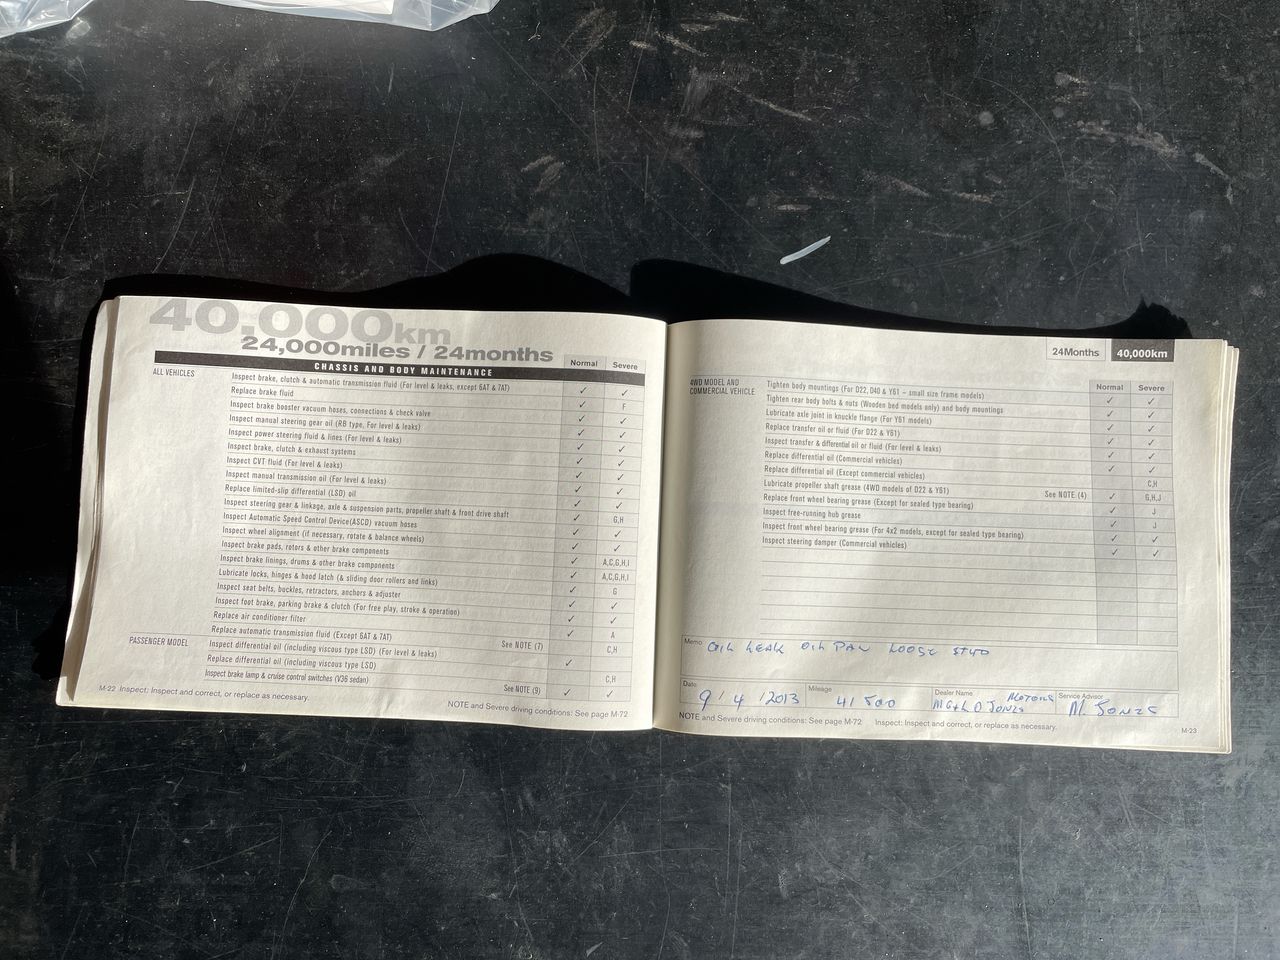 40,000km
24,000miles / 24months
CHASSIS AND BODY MAINTENANCE
Normal Severe
ALL VEHICLES
Inspect brake, clutch & automatic transmission fluid (For level & leaks, except 6AT & 7AT) ✓ ✓
Replace brake fluid ✓ F
Inspect brake booster vacuum hoses, connections & check valve ✓ ✓
Inspect manual steering gear oil (RB type, For level & leaks) ✓ ✓
Inspect power steering fluid & lines (For level & leaks) ✓ ✓
Inspect brake, clutch & exhaust systems ✓ ✓
Inspect CVT fluid (For level & leaks) ✓ ✓
Inspect manual transmission oil (For level & leaks) ✓ ✓
Replace limited-slip differential (LSD) oil ✓ ✓
Inspect steering gear & linkage, axle & suspension parts, propeller shaft & front drive shaft ✓ G,H
Inspect Automatic Speed Control Device(ASCD) vacuum hoses ✓ ✓
Inspect wheel alignment (if necessary, rotate & balance wheels) ✓ ✓
Inspect brake pads, rotors & other brake components ✓ A,C,G,H,I
Inspect brake linings, drums & other brake components ✓ A,C,G,H,I
Lubricate locks, hinges & hood latch (& sliding door rollers and links) ✓ G
Inspect seat belts, buckles, retractors, anchors & adjuster ✓ ✓
Inspect foot brake, parking brake & clutch (For free play, stroke & operation) ✓ ✓
Replace air conditioner filter ✓ A
Replace automatic transmission fluid (Except 6AT & 7AT) See NOTE (7) C,H
PASSENGER MODEL
Inspect differential oil (including viscous type LSD) (For level & leaks) ✓
Replace differential oil (including viscous type LSD) C,H
Inspect brake lamp & cruise control switches (V36 sedan) See NOTE (9) ✓ ✓
M-22 Inspect: Inspect and correct, or replace as necessary.
NOTE and Severe driving conditions: See page M-72
24Months 40,000km
Normal Severe
4WD MODEL AND
COMMERCIAL VEHICLE
Tighten body mountings (For D22, D40 & Y61 - small size frame models) ✓ ✓
Tighten rear body bolts & nuts (Wooden bed models only) and body mountings ✓ ✓
Lubricate axle joint in knuckle flange (For Y61 models) ✓ ✓
Replace transfer oil or fluid (For D22 & Y61) ✓ ✓
Inspect transfer & differential oil or fluid (For level & leaks) ✓ ✓
Replace differential oil (Commercial vehicles) ✓ ✓
Replace differential oil (Except commercial vehicles) C,H
Lubricate propeller shaft grease (4WD models of D22 & Y61) See NOTE (4) ✓ G,H,J
Replace front wheel bearing grease (Except for sealed type bearing) ✓ J
Inspect free-running hub grease ✓ J
Inspect front wheel bearing grease (For 4x2 models, except for sealed type bearing) ✓ ✓
Inspect steering damper (Commercial vehicles) ✓ ✓
Memo OIL LEAK OIL PAN LOOSE STUD
Date 9 / 4 / 2013 Mileage 41500 Dealer Name JONES MOTORS Service Advisor M. JONES
NOTE and Severe driving conditions: See page M-72 Inspect: Inspect and correct, or replace as necessary.
M-23